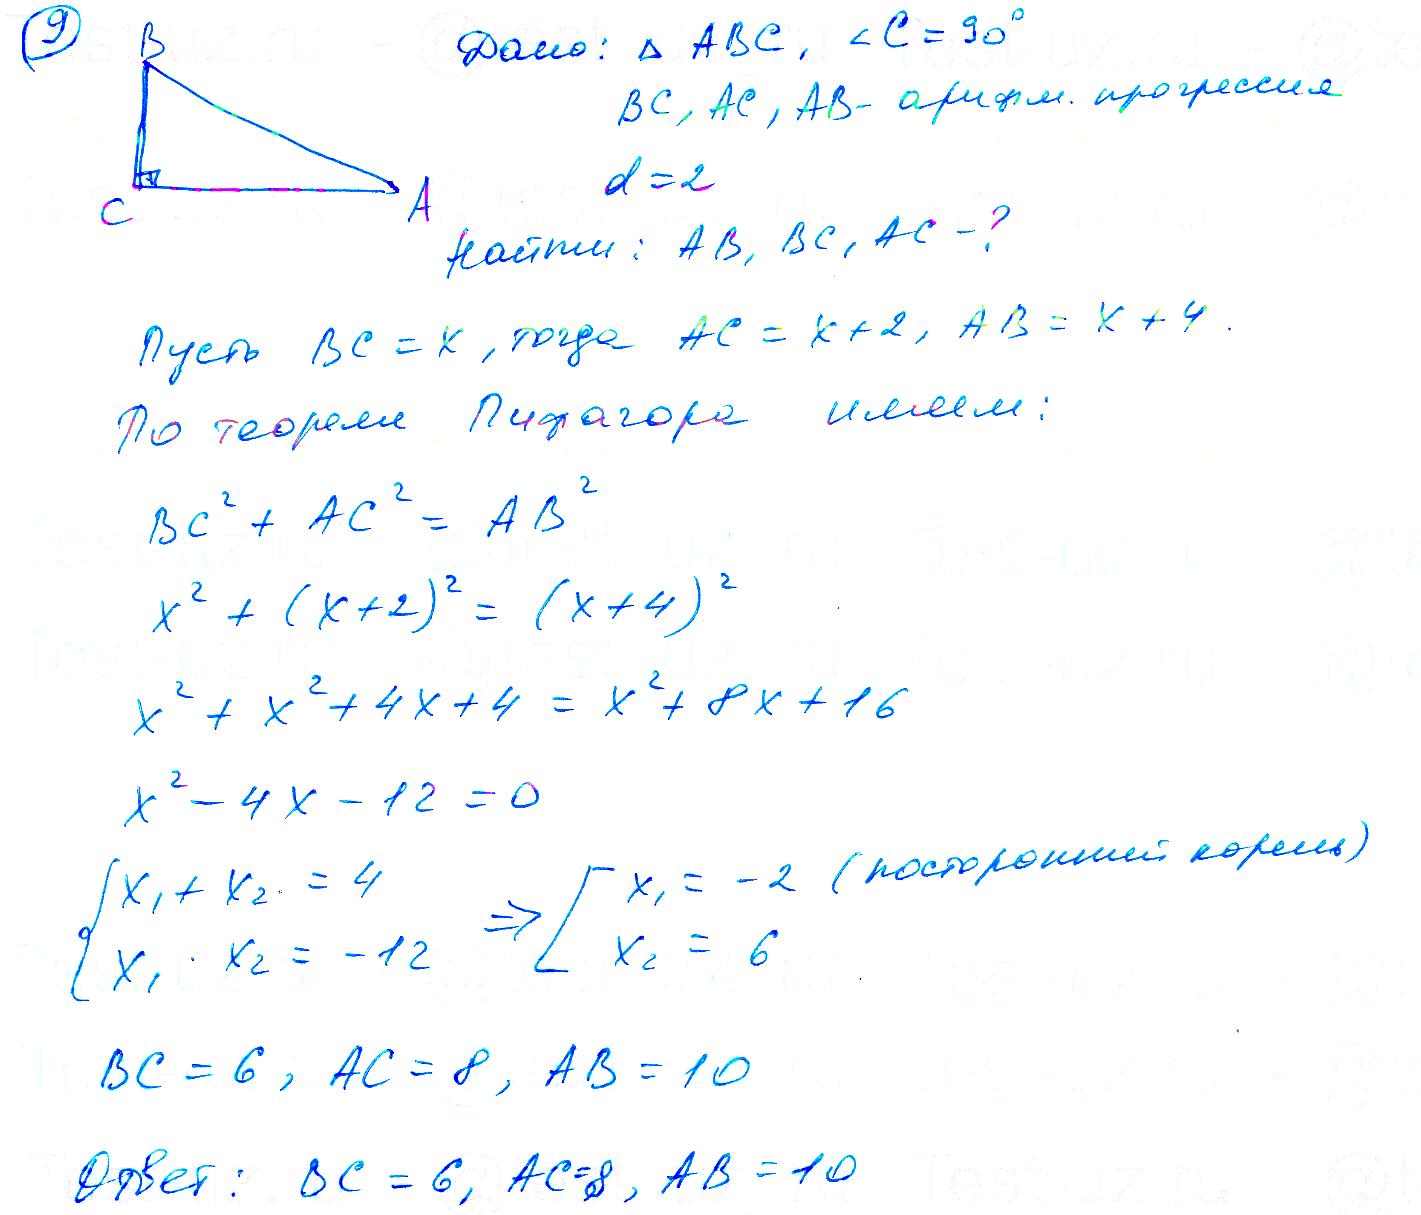 9
B
C
A
Дано: △ ABC, ∠C = 90°
BC, AC, AB - арифм. прогрессия
d = 2
Найти: AB, BC, AC - ?
Пусть BC = x, тогда AC = x + 2, AB = x + 4.
По теореме Пифагора имеем:
BC² + AC² = AB²
x² + (x+2)² = (x+4)²
x² + x² + 4x + 4 = x² + 8x + 16
x² - 4x - 12 = 0
{ x₁ + x₂ = 4 ⇒ [ x₁ = -2 (посторонний корень)
x₁ · x₂ = -12 x₂ = 6
BC = 6, AC = 8, AB = 10
Ответ: BC = 6, AC = 8, AB = 10